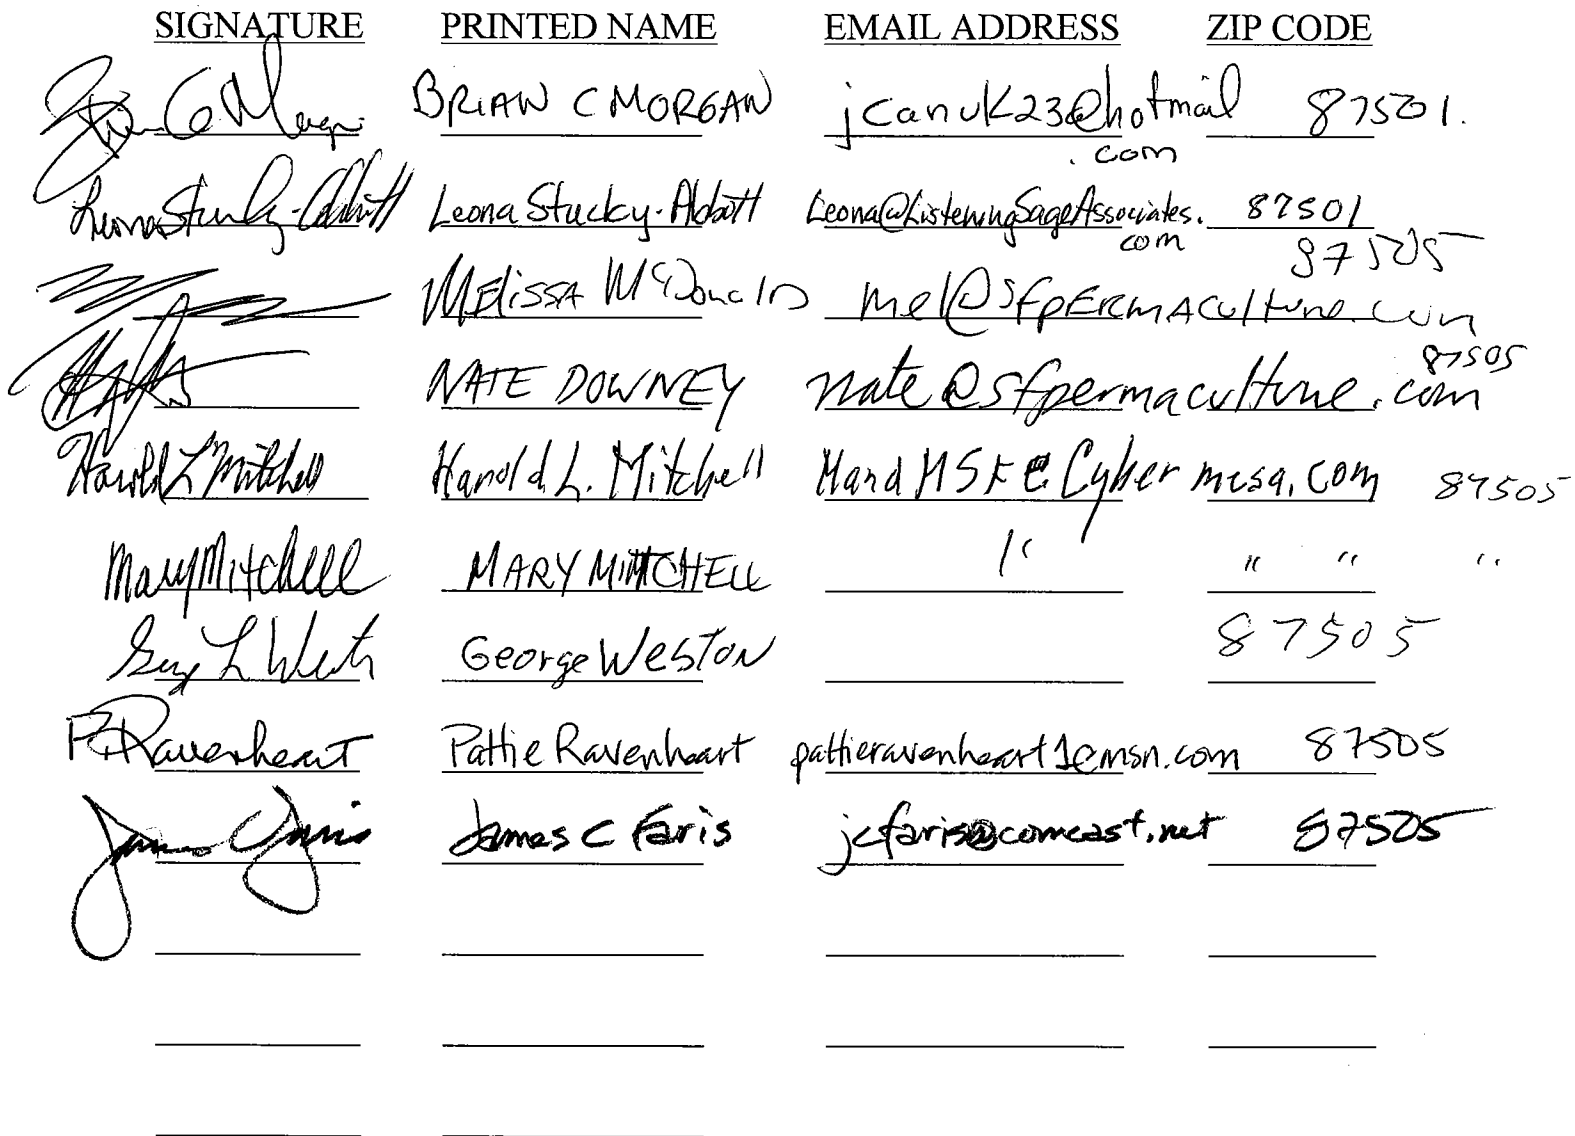 SIGNATURE PRINTED NAME EMAIL ADDRESS ZIP CODE
BRIAN C MORGAN jcanuk23@hotmail 87501.
.com
Leona Stucky-Abbott Leona Stucky-Abbott Leona@ListeningSageAssociates. 87501
com
87505
MELISSA McDonald mel@sfpERmACulture.com
87505
NATE DOWNEY nate@sfpermaculture.com
Harold L Mitchell Harold L. Mitchell HandMSF@Cybermesa.com 87505
Mary Mitchell MARY MITCHELL " " " "
George L Weston George WESTON 87505
P. Ravenheart Pattie Ravenheart pattieravenheart1@msn.com 87505
James C Faris James C Faris jcfaris@comcast.net 87505